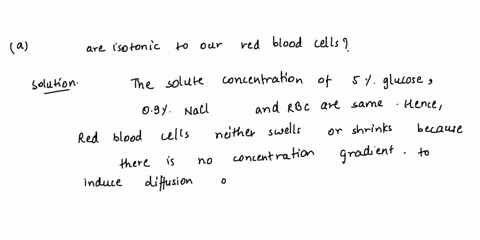 (a) are isotonic to our red blood cells?
Solution. The solute concentration of 5%. glucose,
0.9%. NaCl and RBC are same. Hence,
Red blood cells neither swells or shrinks because
there is no concentration gradient. to
induce diffusion o